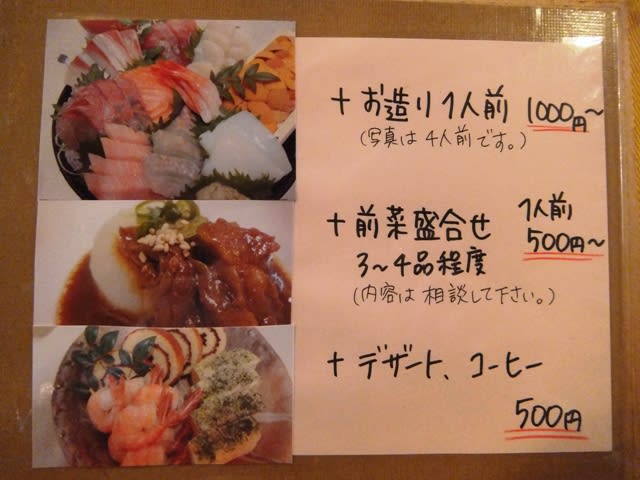 +お造り1人前 1000円〜
(写真は4人前です。)
+前菜盛合せ 1人前
500円〜
3〜4品程度
(内容は相談して下さい。)
+デザート、コーヒー
500円